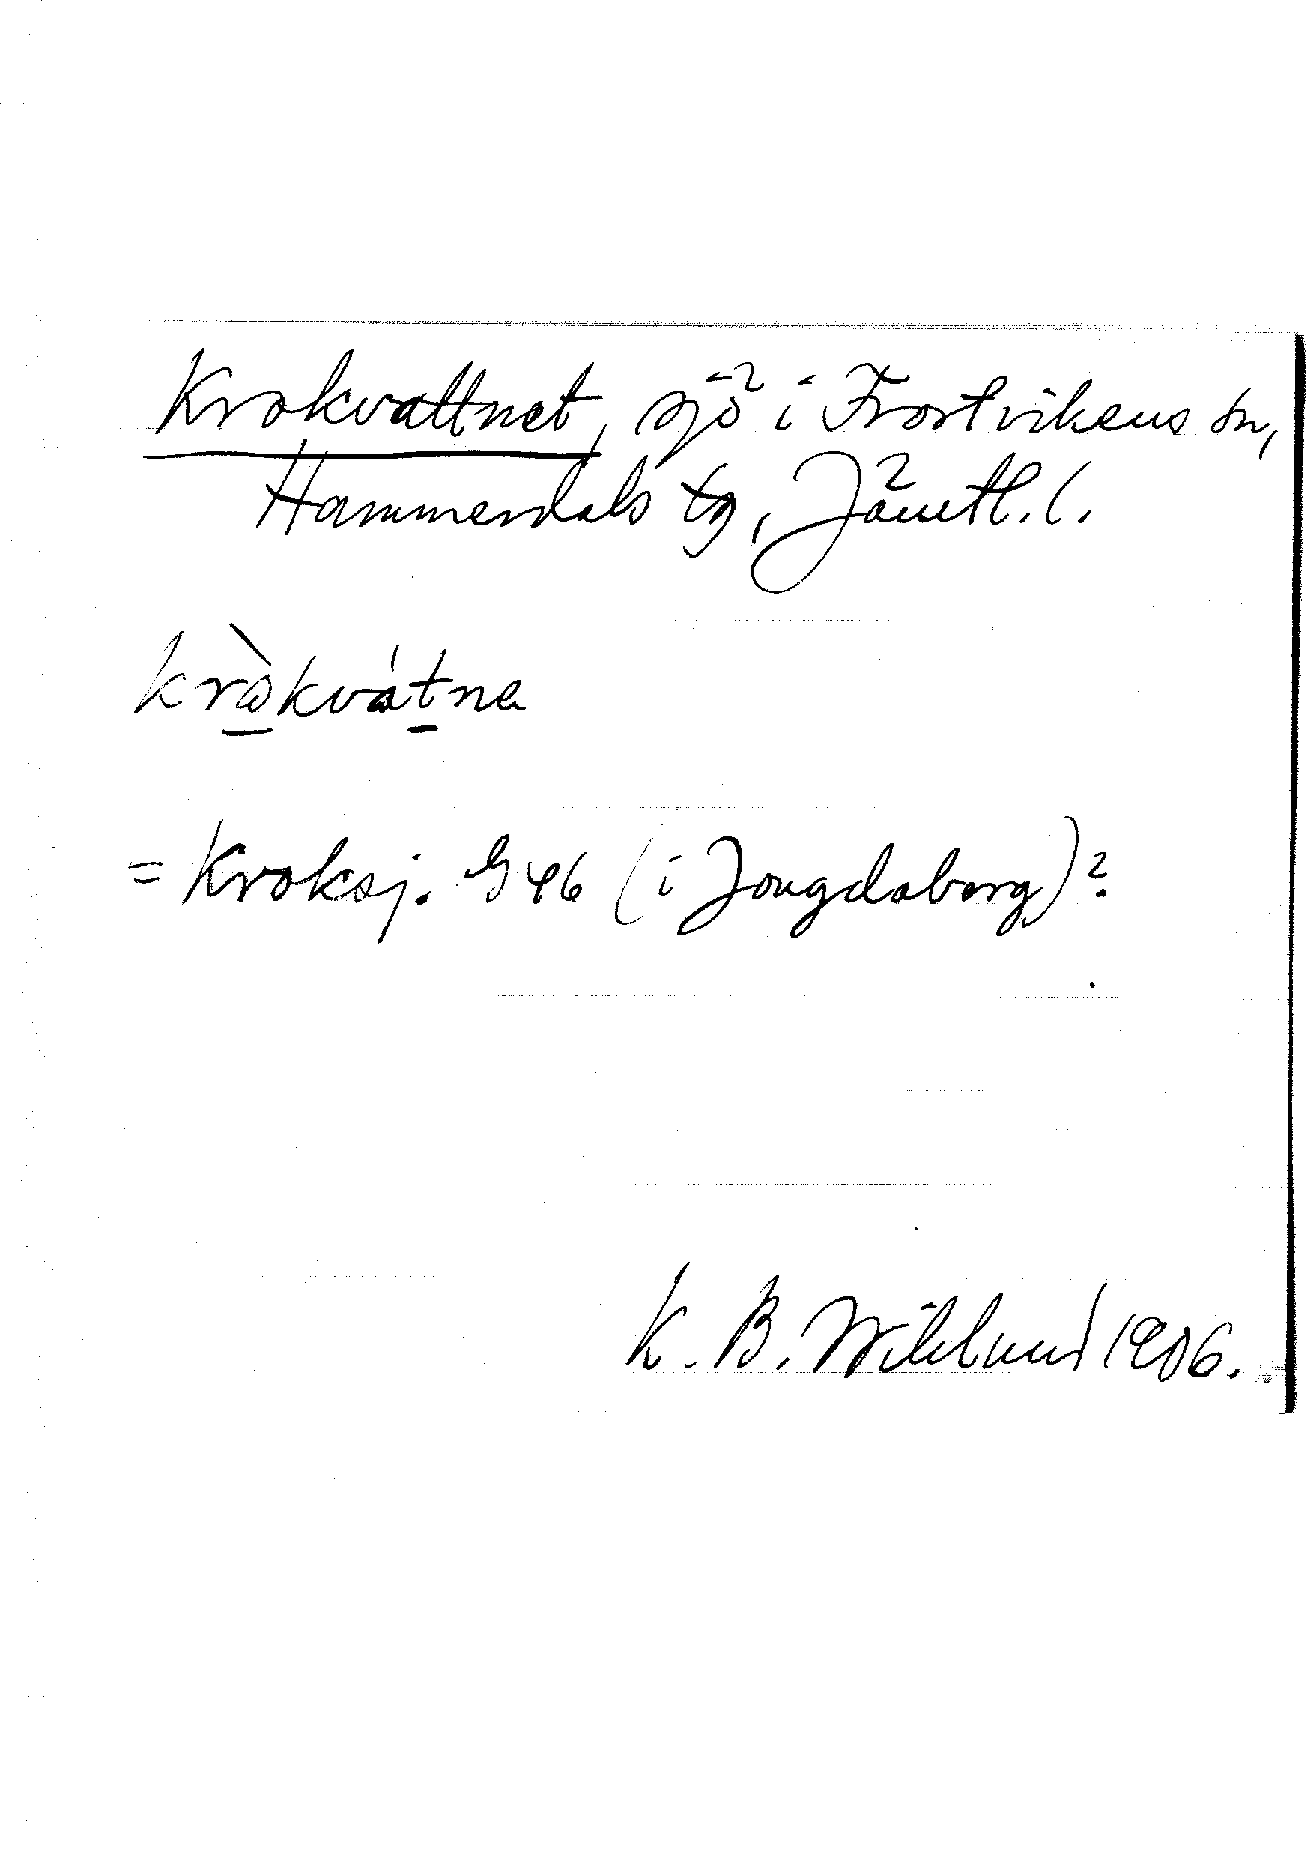 Krokvattnet, sjö i Frostvikens sn,
Hammerdals tg, Jämtl. l.
kròkvátna
= Kroksj. G46 (i Jougdaberg)?
K. B. Wiklund 1906.